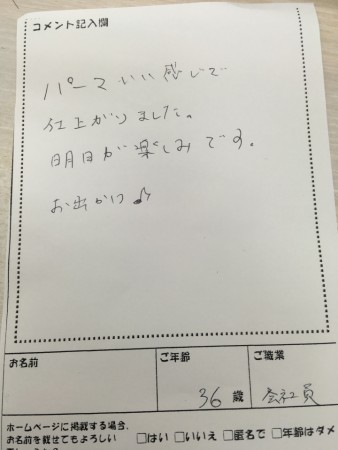 コメント記入欄
パーマいい感じで
仕上がりました。
明日が楽しみです。
お出かけ♪
お名前 ご年齢 ご職業
36歳 会社員
ホームページに掲載する場合、
お名前を載せてもよろしい □はい □いいえ □匿名で □年齢はダメ